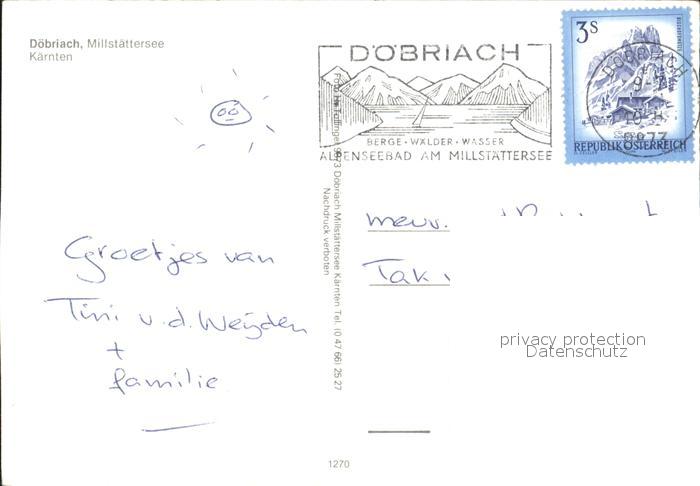 Döbriach, Millstättersee
Kärnten
DÖBRIACH
BERGE · WÄLDER · WASSER
ALPENSEEBAD AM MILLSTÄTTERSEE
3s
REPUBLIK ÖSTERREICH
DÖBRIACH
9873
Groetjes van
Tini v.d. Weijden
+
familie
9873 Döbriach Millstättersee Kärnten Tel. (0 47 66) 25 27
Nachdruck verboten
mevr.
Tak
privacy protection
Datenschutz
1270